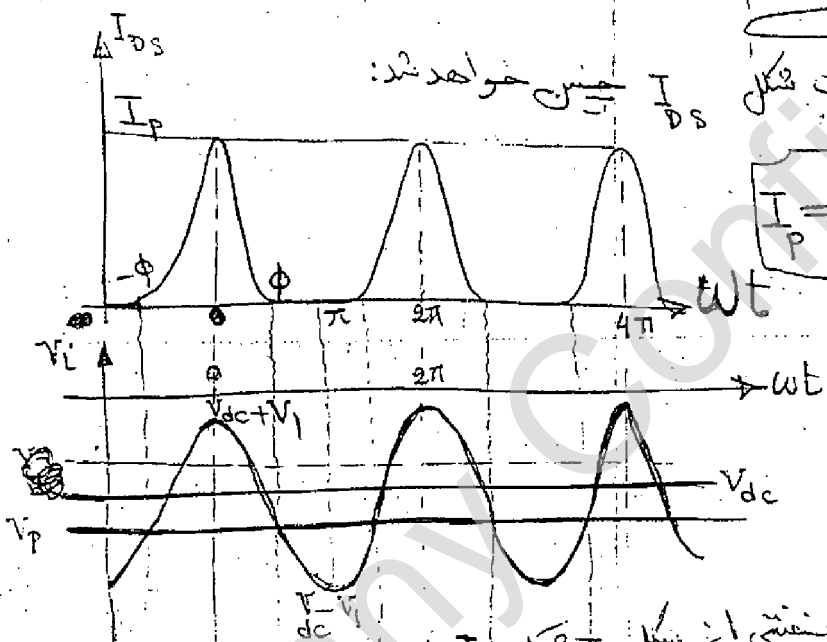 I_DS
I_DS چنین خواهد شد:
شکل
I_P
I_P =
-ϕ
ϕ
0 π 2π 4π
ωt
V_i
0 2π
ωt
V_dc+V_1
V_dc
V_P
V_dc-V_1
شکل